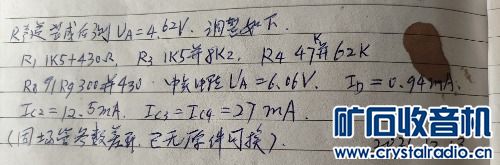 R 装成后测 UA=4.62V. 调整如下.
R1 1K5+430Ω, R3 1K5并8K2, R4 47K并62K
R8 91 R9 300并430 中点电压 UA=6.06V, ID=0.94mA.
IC2=12.5mA, IC3=IC4=27mA.
(因场管参数差异, 已无原件可换).
矿石收音机
www.crystalradio.cn